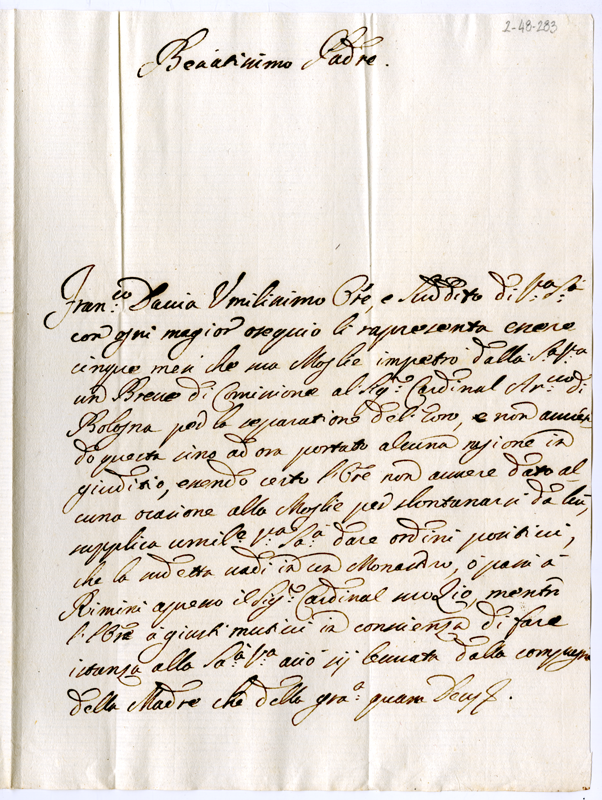 2-48-283
Beatissimo Padre.
Fran.co Dauia Umilissimo Ore, e Suddito di V.ra S.tà
con ogni magior osequio li rapresenta essere
cinque mesi che sua Moglie impetrò dalla S.tà Sua
un Breue di Comisione al Sig.r Cardinal Ar.
Bologna per la separatione del Toro, e non auuen
do questa sino ad ora portato alcuna ragione in
giuditio, essendo certo l'Ore non auuere dato al
cuna ocasione alla Moglie per slontanarsi da lui,
supplica umil.e V.ra S.tà dare ordini positiui,
che la sudetta uadi in un Monastro, ò passi à
Rimini apresso il Sig.r Cardinal suo Zio, mentre
l'Ore à giusti motiui in consienza di fare
istanza alla S.tà V.ra aciò sij leuata dalla compagnia
della Madre che della gra.a quam Deus